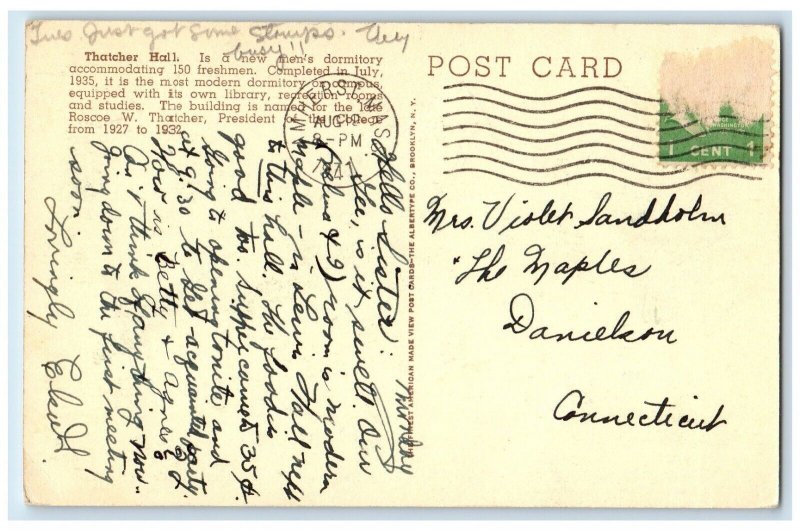 Tues Just got some stamps. Very
busy!!
Thatcher Hall. Is a new men's dormitory
accommodating 150 freshmen. Completed in July,
1935, it is the most modern dormitory on campus,
equipped with its own library, recreation rooms
and studies. The building is named for the late
Roscoe W. Thatcher, President of the College
from 1927 to 1932.
POST CARD
AMHERST, MASS.
AUG 12
8-PM
1941
WASHINGTON
1 CENT 1
THE FINEST AMERICAN MADE VIEW POST CARDS—THE ALBERTYPE CO., BROOKLYN, N.Y.
Thursday
Hello Sister:
Gee, is it swell. Our
(Evelina & I) room is modern
maple – in Lewis Hall next
to this hall. The food is
good too supper cames 35¢.
Going to opening tonite and
at 9:30 to get acquainted party.
How is Betty & Agnes?
Can't think of anything now.
Going down to the first meeting
soon.
Lovingly
Mrs. Violet Sandholm
"The Maples
Danielson
Connecticut